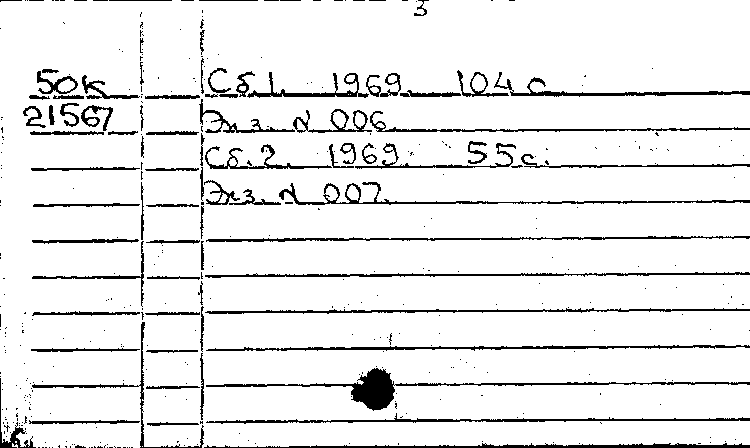 3
50к Сб.1. 1969. 104 с.
21567 Экз. № 006.
Сб.2. 1969. 55с.
Экз. № 007.